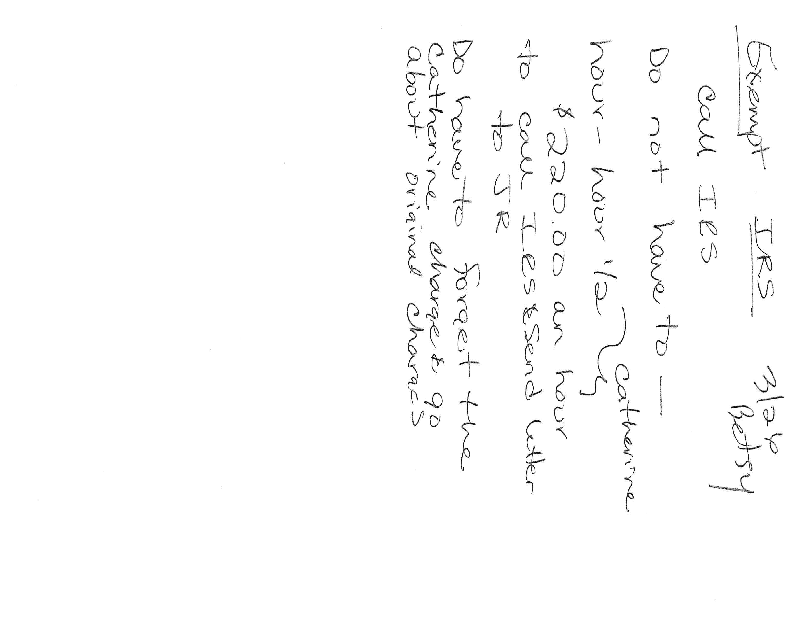 Exempt IRS 3/26
Betsy
call IRS
Do not have to —
hour - hour 1/2 } Catherine
$220.00 an hour
to call IRS & send letter
to JR
Do have to forget the
Catherine charge & go
about original charges